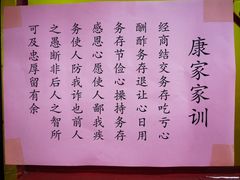 康家家训
经商结交务存吃亏心
酬酢务存退让心日用
务存节俭心操持务存
感恩心愿使人鄙我疾
务使人防我诈也前人
之愚断非后人之智所
可及忠厚留有余